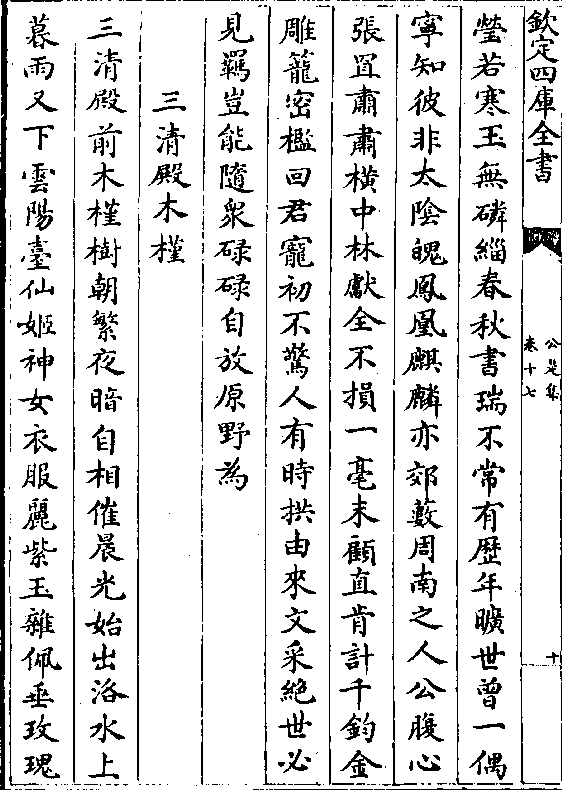 欽定四庫全書
公是集
卷十七
十
瑩若寒玉無磷緇春秋書瑞不常有歴年曠世曾一偶
寧知彼非太陰魄鳳凰麒麟亦郊藪周南之人公腹心
張罝肅肅横中林獻全不損一毫末顧直肯計千鈞金
雕籠密檻回君寵初不驚人有時拱由來文采絶世必
見羈豈能隨衆碌碌自放原野為
三清殿木槿
三清殿前木槿樹朝繁夜暗自相催晨光始出洛水上
暮雨又下雲陽臺仙姬神女衣服麗紫玉雜佩垂玫瑰